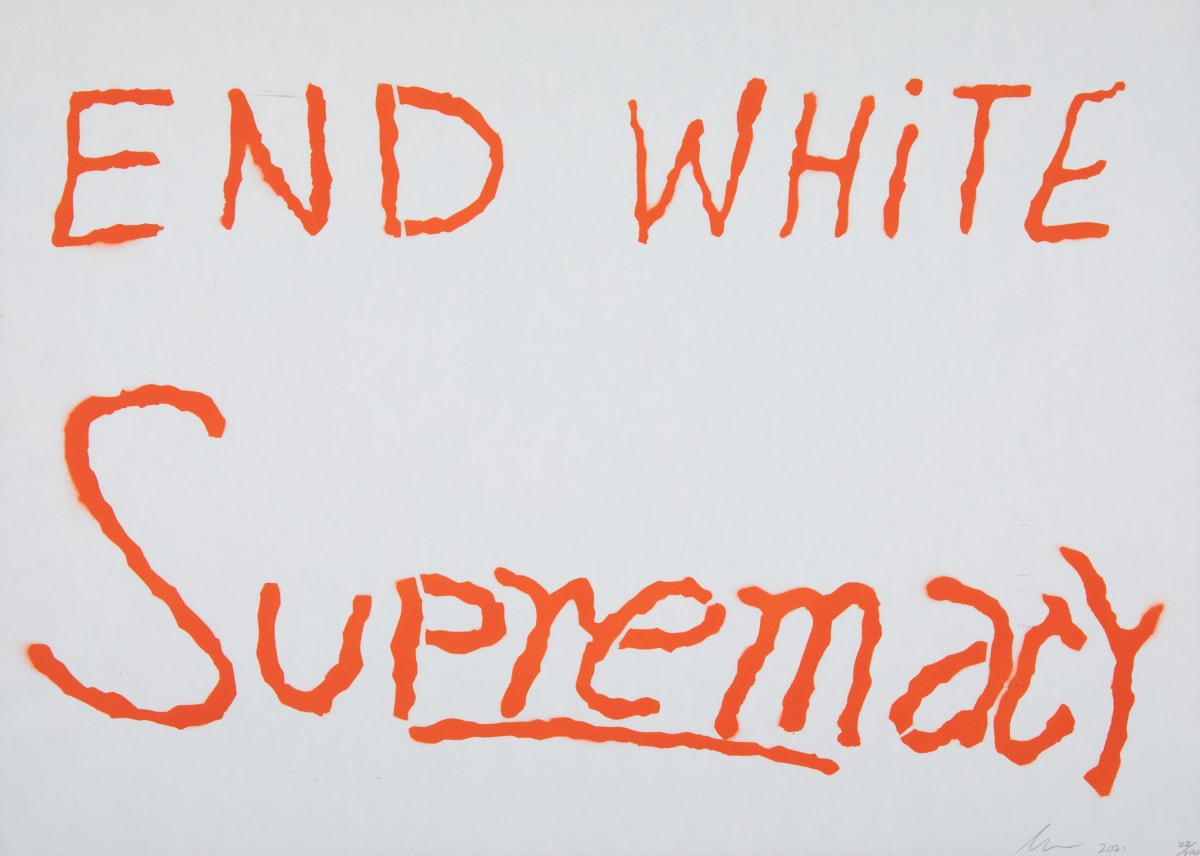 END WHiTE
SupremacY
2021